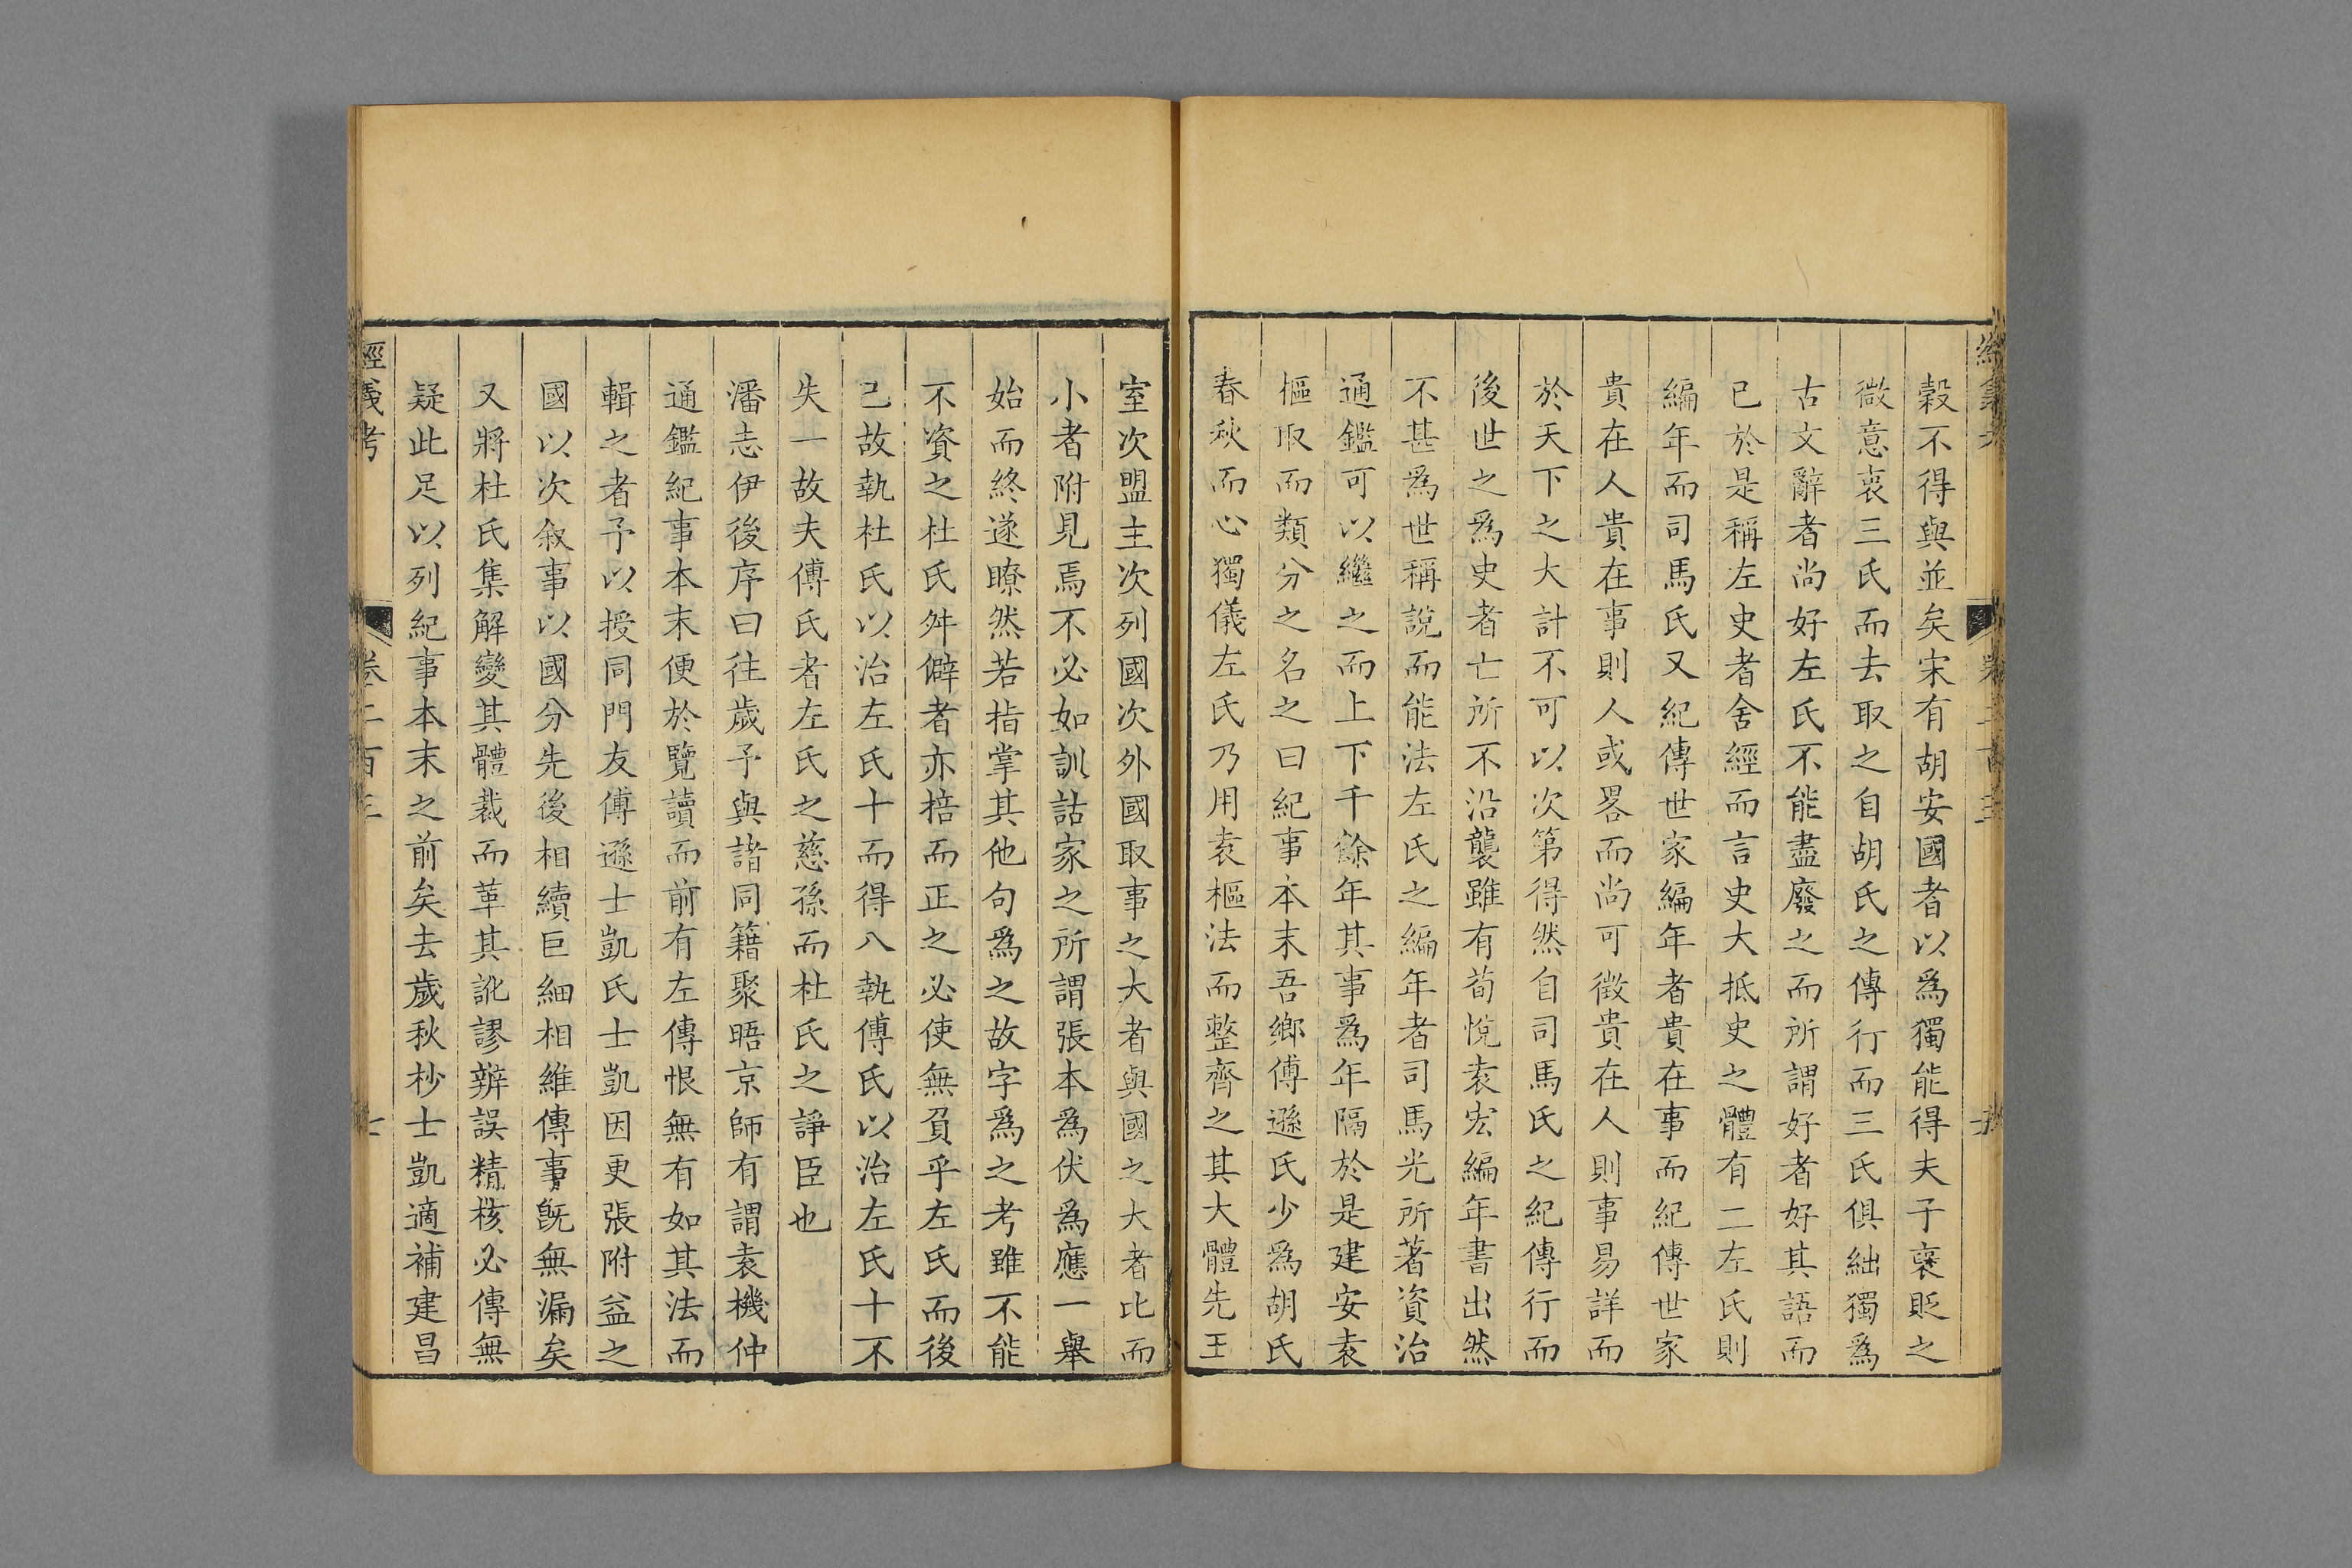 穀不得與並矣宋有胡安國者以爲獨能得夫子襃貶之
微意衷三氏而去取之自胡氏之傳行而三氏俱絀獨爲
古文辭者尚好左氏不能盡廢之而所謂好者好其語而
已於是稱左史者舍經而言史大抵史之體有二左氏則
編年而司馬氏又紀傳世家編年者貴在事而紀傳世家
貴在人貴在事則人或畧而尚可徵貴在人則事易詳而
於天下之大計不可以次第得然自司馬氏之紀傳行而
後世之爲史者亡所不沿襲雖有荀悅袁宏編年書出然
不甚爲世稱說而能法左氏之編年者司馬光所著資治
通鑑可以繼之而上下千餘年其事爲年隔於是建安袁
樞取而類分之名之曰紀事本末吾鄉傅遜氏少爲胡氏
春秋而心獨儀左氏乃用袁樞法而整齊之其大體先王
室次盟主次列國次外國取事之大者與國之大者比而
小者附見焉不必如訓詁家之所謂張本爲伏爲應一舉
始而終遂瞭然若指掌其他句爲之故字爲之考雖不能
不資之杜氏舛僻者亦掊而正之必使無負乎左氏而後
已故執杜氏以治左氏十而得八執傅氏以治左氏十不
失一故夫傅氏者左氏之慈孫而杜氏之諍臣也
潘志伊後序曰往歲予與諸同籍聚晤京師有謂袁機仲
通鑑紀事本末便於覽讀而前有左傳恨無有如其法而
輯之者予以授同門友傅遜士凱氏士凱因更張附益之
國以次叙事以國分先後相續巨細相維傳事旣無漏矣
又將杜氏集解變其體裁而革其訛謬辨誤精核必傳無
疑此足以列紀事本末之前矣去歲秋杪士凱適補建昌
經義考 卷二百三 七